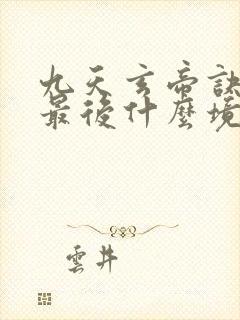 九天玄帝訣
最後什麼境
雲井